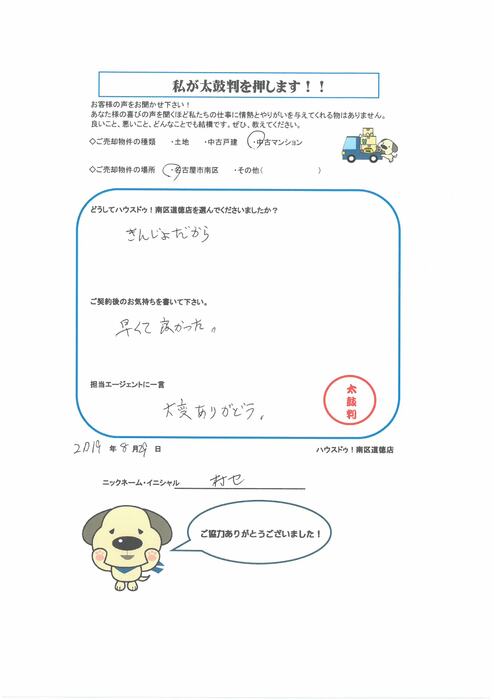 私が太鼓判を押します！！
お客様の声をお聞かせ下さい！
あなた様の喜びの声を聞くほど私たちの仕事に情熱とやりがいを与えてくれる物はありません。
良いこと、悪いこと、どんなことでも結構です。ぜひ、教えてください。
◇ご売却物件の種類 ・土地 ・中古戸建 ・中古マンション
◇ご売却物件の場所 ・名古屋市南区 ・その他( )
どうしてハウスドゥ！南区道徳店を選んでくださいましたか？
きんじょだから
ご契約後のお気持ちを書いて下さい。
早くて良かった。
担当エージェントに一言
大変ありがとう。
太鼓判
2019 年 8 月 29 日 ハウスドゥ！南区道徳店
ニックネーム・イニシャル 村セ
ご協力ありがとうございました！